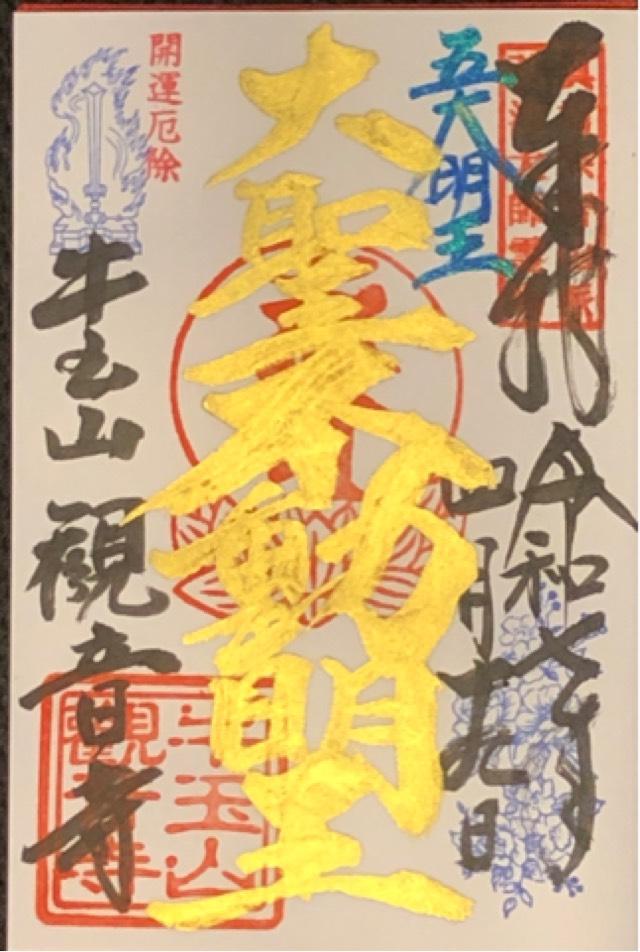 奉拝
令和七年
四月十九日
五大明王
大聖不動明王
開運厄除
牛玉山 觀音寺
牛玉山
觀音寺